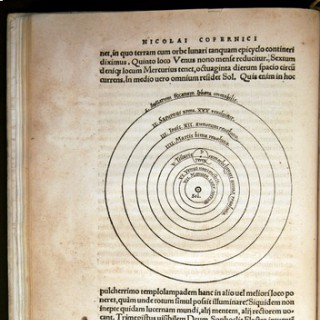 NICOLAI COPERNICI
net, in quo terram cum orbe lunari tanquam epicyclo contineri
diximus. Quinto loco Venus nono mense reducitur. Sextum
deniq; locum Mercurius tenet, octuaginta dierum spacio circū
currens. In medio uero omnium residet Sol. Quis enim in hoc
I. Stellarum fixarum sphæra immobilis.
II. Saturnus anno XXX. reuoluitur.
III. Iouis XII. annorum reuolutio.
IIII. Martis bima reuolutio.
Sol.
pulcherrimo templo lampadem hanc in alio uel meliori loco po
neret, quàm unde totum simul possit illuminare? Siquidem non
inepte quidam lucernam mundi, alij mentem, alij rectorem uo-
cant. Trimegistus uisibilem Deum,